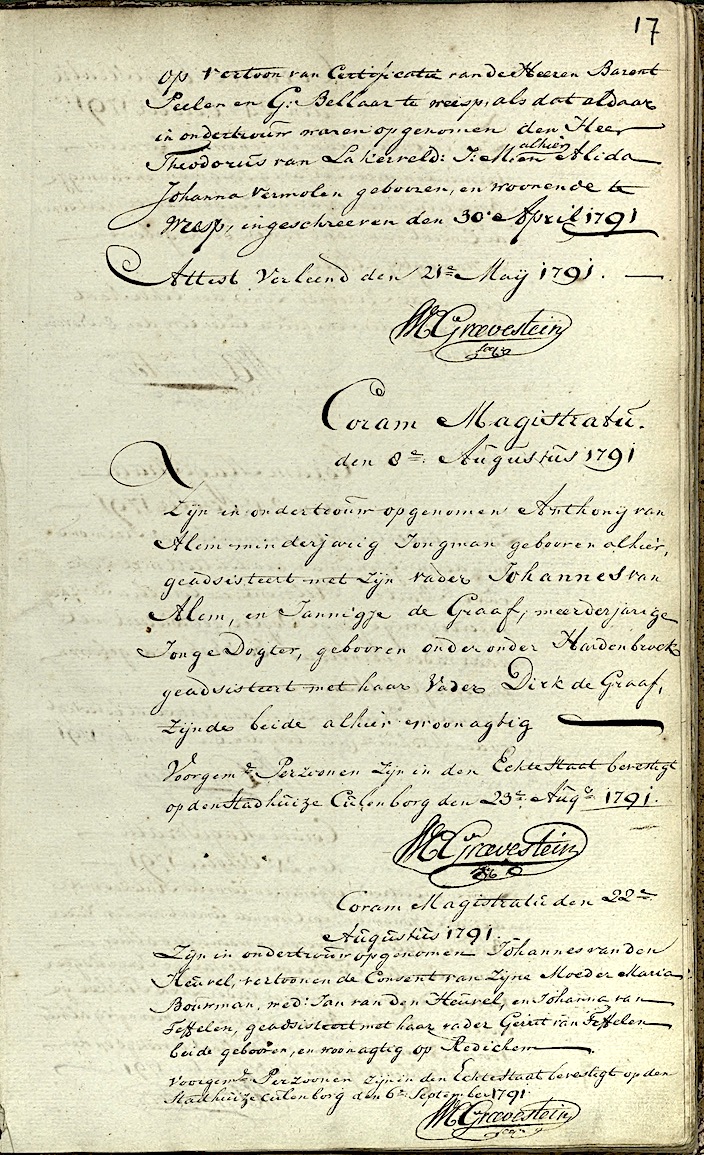 17
op vertoon van Certificatie van de Heeren Barent
Peelen en G: Bellaar te weesp, als dat aldaar
in ondertrouw waren opgenomen den Heer
alhier
Theodorus van Lakerveld: J: M: en Alida
Johanna Vermolen gebooren, en woonende te
Weesp, ingeschreeven den 30e April 1791
Attest Verleend den 21e Maij 1791.
Grœvestein
Coram Magistratu.
den 8e Augustus 1791
Zijn in ondertrouw opgenomen Anthonij van
Alem minderjarig Jongman gebooren alhier,
geadsisteert met Zijn vader Johannes van
Alem, en Jannigje de Graaf, meerderjarige
Jonge Dogter, gebooren onder onder Hardenbroek
geadsisteert met haar Vader Dirk de Graaf,
Zijnde beide alhier woonagtig
Voorgemde Perzoonen Zijn in den Echte Staat bevestigt
op den Stadhuize Culenborg den 23e Auge 1791.
Grœvestein
Coram Magistratu den 22e
Augustus 1791.
Zijn in ondertrouw opgenomen Johannes van den
Heuvel, vertoonende Consent van Zijne Moeder Maria
Bouwman, wed: Jan van den Heuvel, en Johanna van
Teffelen, geadsisteert met haar vader Gerrit van Teffelen
beide gebooren, en woonagtig op Redichem
Voorgemde Perzoonen zijn in den Echte Staat bevestigt op den
Stadhuize Culenborg den 6e September 1791
Grœvestein